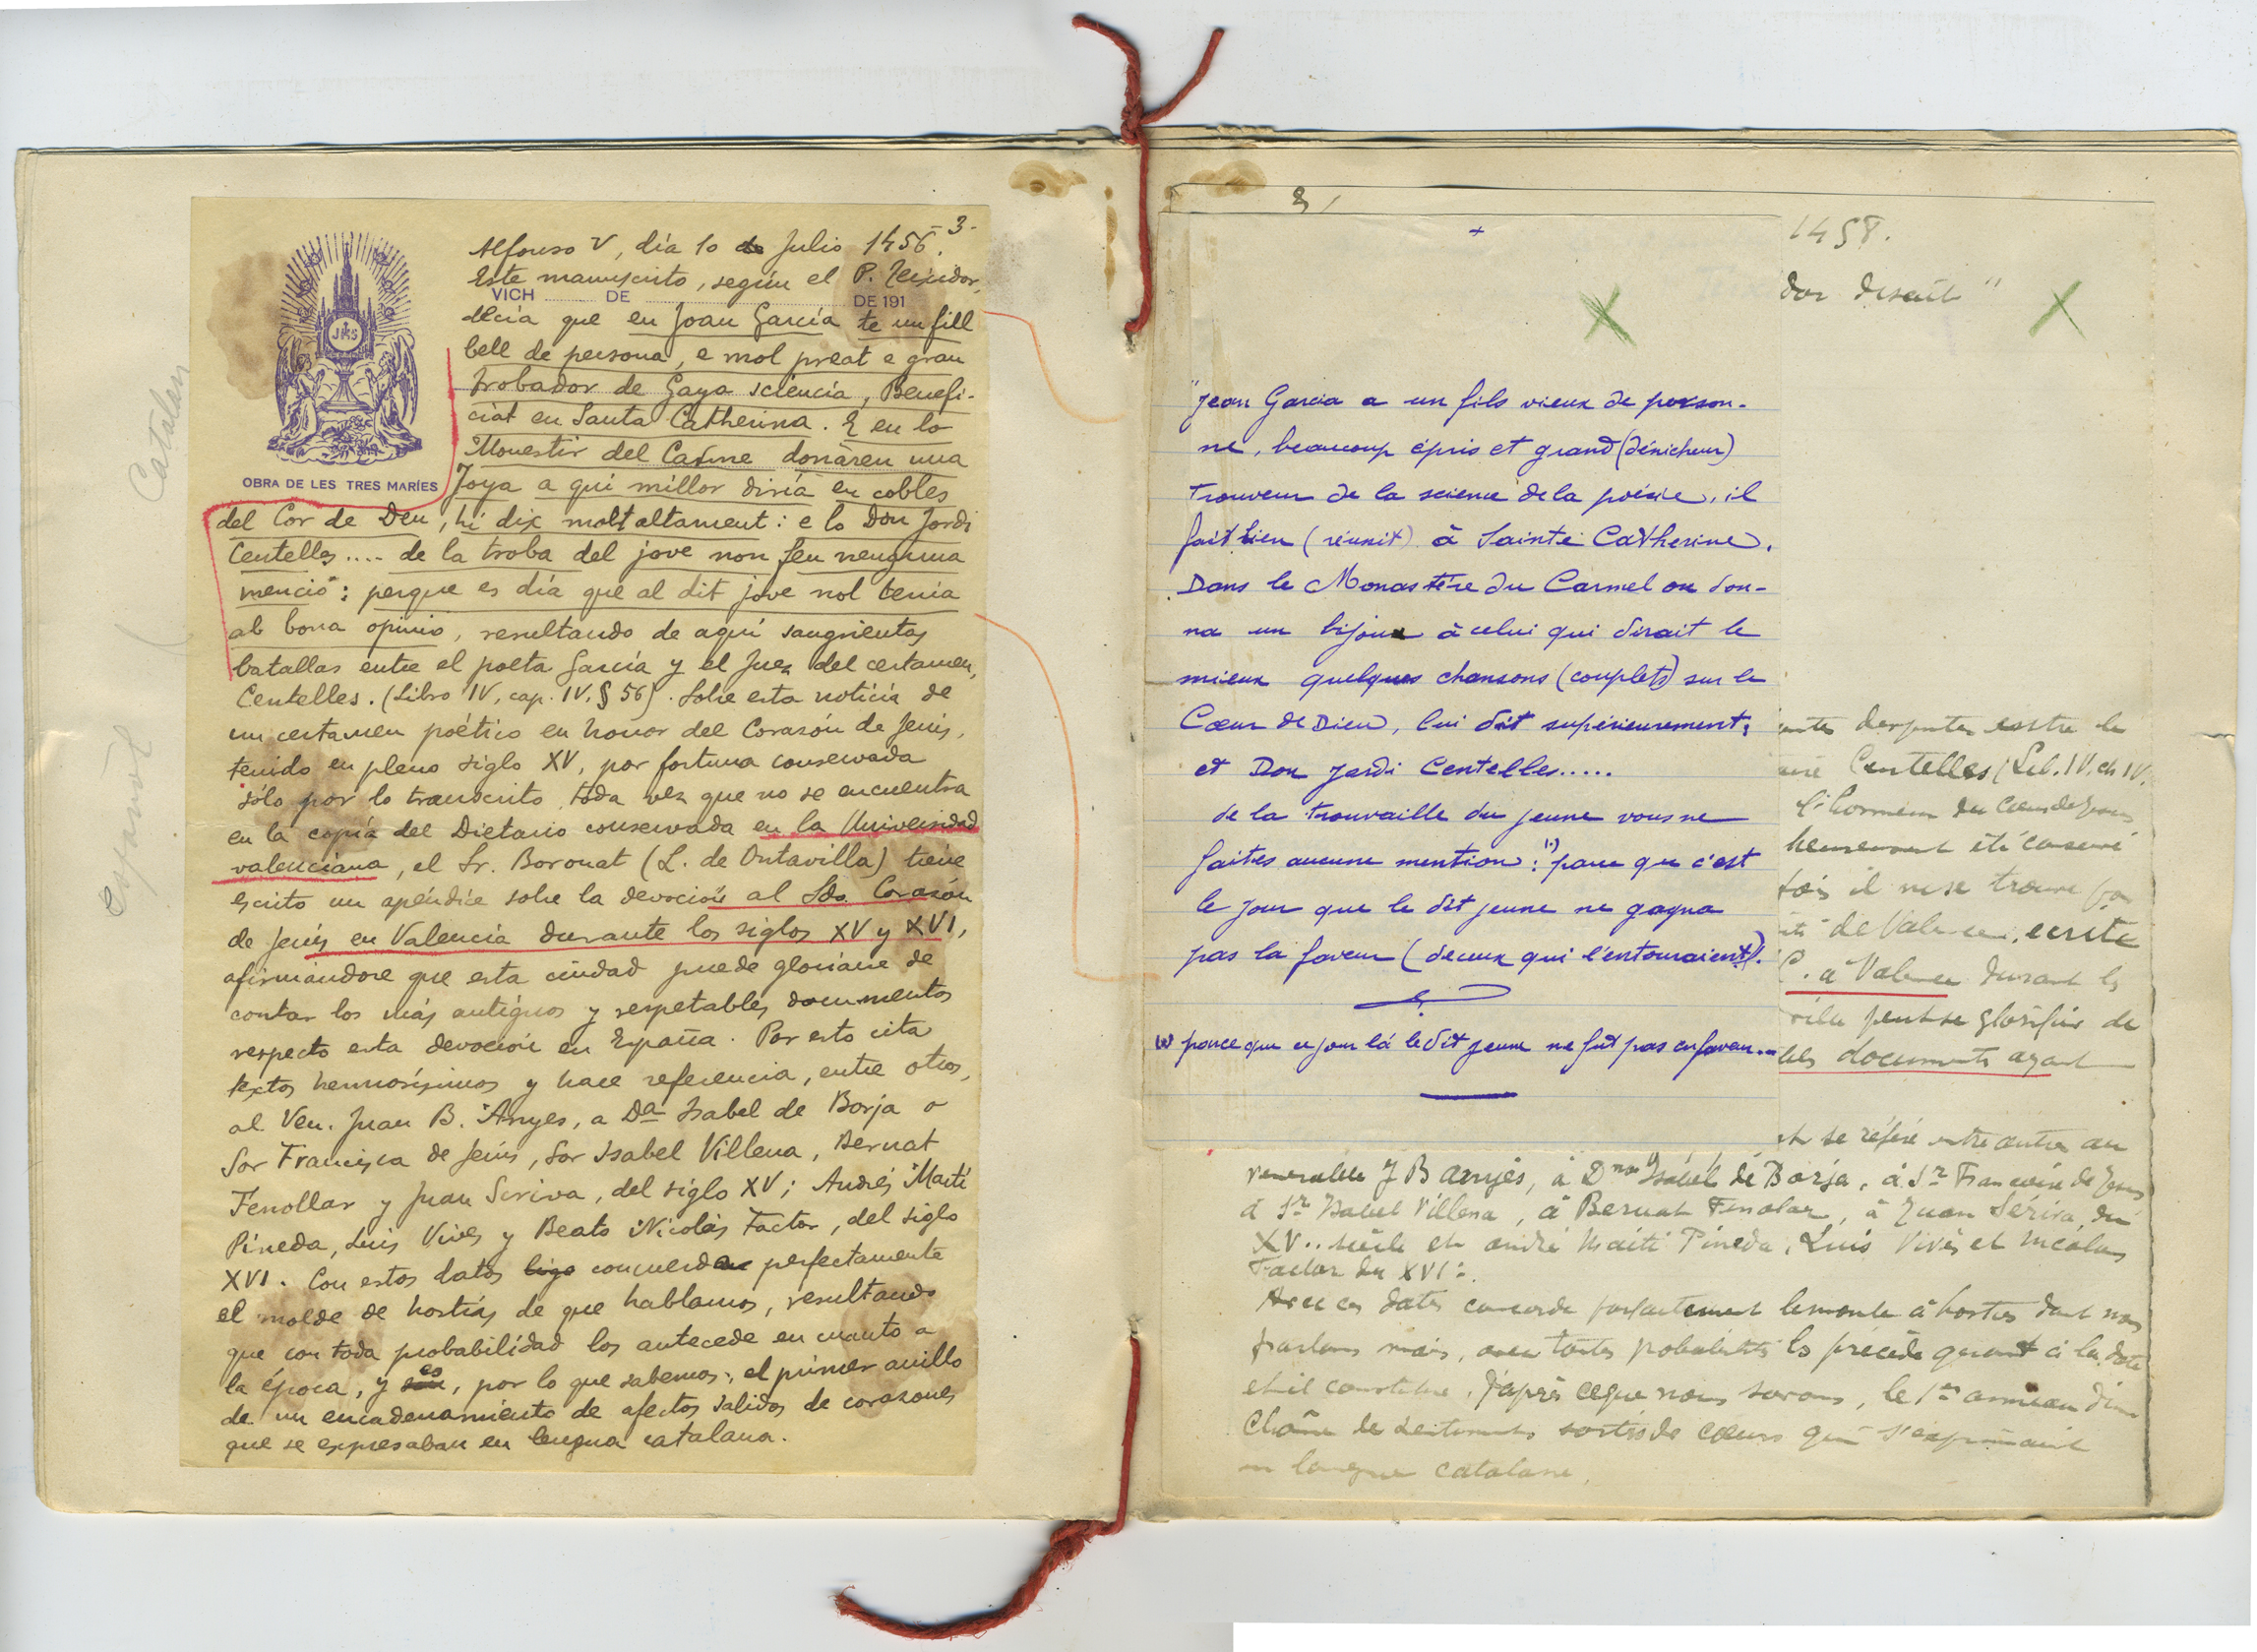 3.
Alfonso V, día 10 de Julio 1456.
Este manuscrito, según el P. Teixidor,
VICH DE DE 191
decía que en Joan García te un fill
bell de persona, e mol preat e gran
trobador de Gaya sciencia, Benefi-
ciat en Santa Catherina. E en lo
Monestir del Carme donaren una
OBRA DE LES TRES MARÍES
Joya a qui millor diria en cobles
del Cor de Deu, hi dix molt altament: e lo Don Jordi
Centelles .... de la troba del jove non feu nenguna
menció": perque es día que al dit jove nol tenia
ab bona opinio, resultando de aquí sangrientas
batallas entre el poeta García y el Juez del certamen,
Centelles. (Libro IV, cap. IV, § 56). Sobre esta noticia de
un certamen poético en honor del Corazón de Jesús,
tenido en pleno siglo XV, por fortuna conservada
sólo por lo transcrito, toda vez que no se encuentra
en la copia del Dietario conservada en la Universidad
valenciana, el Sr. Boronat (L. de Ontavilla) tiene
escrito un apéndice sobre la devoción al Sdo. Corazón
de Jesús en Valencia durante los siglos XV y XVI,
afirmándose que esta ciudad puede gloriarse de
contar los más antiguos y respetables documentos
respecto esta devoción en España. Por esto cita
textos hermosísimos y hace referencia, entre otros,
al Ven. Juan B. Anyes, a Dª Isabel de Borja o
Sor Francisca de Jesús, Sor Isabel Villena, Bernat
Fenollar y Juan Scriva, del siglo XV; Andrés Martí
Pineda, Luis Vives y Beato Nicolás Factor, del siglo
XVI. Con estos datos concuerda perfectamente
el molde de hostias de que hablamos, resultando
que con toda probabilidad los antecede en cuanto a
la época, y es, por lo que sabemos, el primer anillo
de un encadenamiento de afectos salidos de corazones
que se expresaban en lengua catalana.
Catalan
español
1458.
dor disait"
"Jean Garcia a un fils vieux de person-
ne, beaucoup épris et grand (dénicheur)
trouveur de la science de la poésie, il
fait lien (réunit) à Sainte Catherine.
Dans le Monastère du Carmel on don-
na un bijou à celui qui dirait le
mieux quelques chansons (couplets) sur le
Cœur de Dieu, lui dit supérieurement;
et Don Jordi Centelles.....
de la trouvaille du jeune vous ne
faites aucune mention: (1) parce que c'est
le jour que le dit jeune ne gagna
pas la faveur (de ceux qui l'entouraient).
(1) parce que ce jour là le dit jeune ne fut pas en faveur...
entre le
Centelles (Lib. IV. ch IV.
l'honneur du Cœur de Jésus
heureusement été conservé
il ne se trouve pas
de Valence, écrite
C. à Valence durant les
ville peut se glorifier de
documents ayant
et se réfère entre autres au
vénérable J B Anyès, à Dna Isabel de Borja, à Sr Françoise de Jésus
à Sr Isabel Villena, à Bernat Fenolar, à Juan Sériva, du
XV.. siècle et André Maiti Pineda, Luis Vivès et Nicolas
Factor du XVIe.
Avec ces dates concorde parfaitement le moule à hosties dont nous
parlons mais, avec toutes probabilités les précède quant à la date
et il constitue, d'après ce que nous savons, le 1er anneau d'une
Chaîne de sentiments sortis de cœurs qui s'exprimaient
en langue catalane.